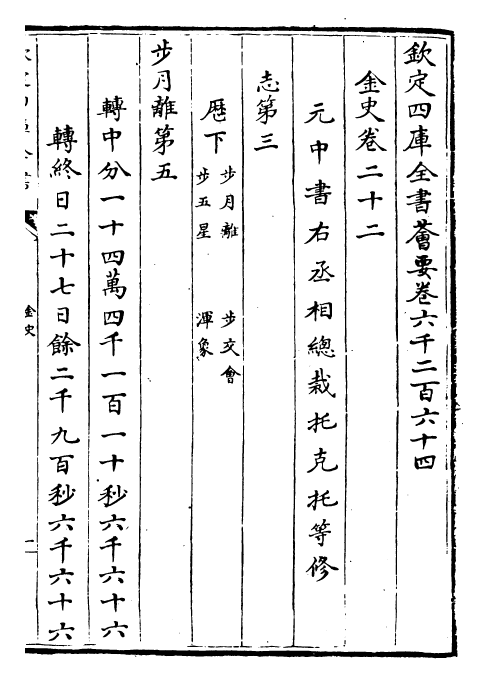 欽定四庫全書薈要卷六千二百六十四
金史卷二十二
元中書右丞相總裁托克托等修
志第三
厯下
步月離 步交會
步五星 渾象
步月離第五
轉中分一十四萬四千一百一十秒六千六十六
轉終日二十七日餘二千九百秒六千六十六
金史